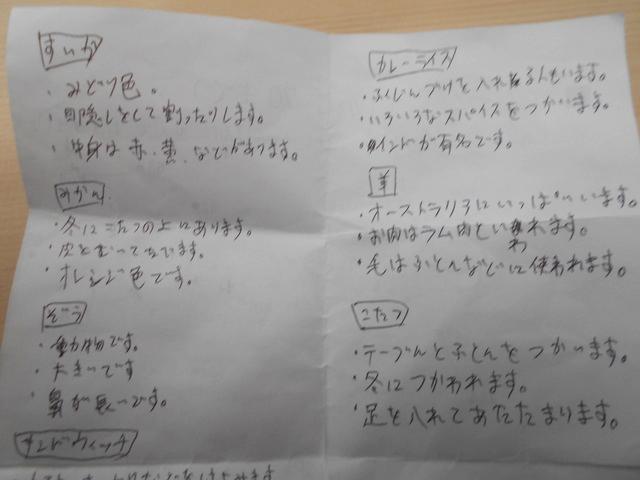 すいか
・みどり色。
・目隠しをして割ったりします。
・中身は赤、黄、などがあります。
みかん
・冬にこたつの上にあります。
・皮をむいてたべます。
・オレンジ色です。
ぞう
・動物です。
・大きいです
・鼻が長いです。
サンドウィッチ
カレーライス
・ふくじんづけを入れる人もいます。
・いろいろなスパイスをつかいます。
・インドが有名です。
羊
・オーストラリアにいっぱいいます。
・お肉はラム肉といわれます。
・毛はふとんなどに使われます。
こたつ
・テーブルとふとんをつかいます。
・冬につかわれます。
・足を入れてあたたまります。